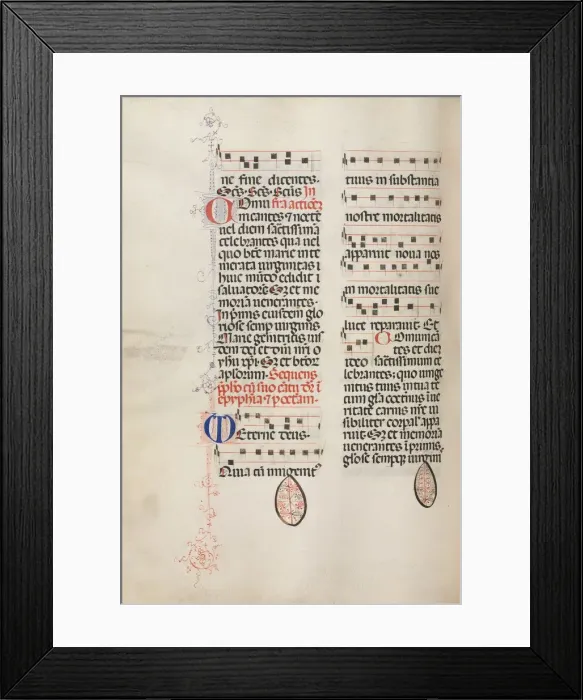 ne fine dicentes.
Scs. Scs. Scus In
Omni fra actiõez
micantes ⁊ nocte
uel diem sactissima
celebrantes qua uel
quo bte marie inte
merata uirginitas
huic mũdo edidit
saluatorẽ Sz et me
moria uenerantes.
In primis eiusdem glo
riose semp uirginis
Marie genitricis
dei et dñi nri
xpi. Sz et btoz
aplorum. Sequens
epyphia ⁊ p octam.
Eterne deus.
Quia cũ unigenit
tuus in substantia
nostre mortalitatis
apparuit noua nos
in mortalitatis sue
luce reparauit. Et
Omunica
tes et diez
sactissimum ce
lebrantes: quo unige
nitus tuus in tua te
cum gla coeternus in ue
ritate carnis nre
sibiliter corpal appa
ruit. Sz et memoria
uenerantes i primis.
gliose sempqz uirgini